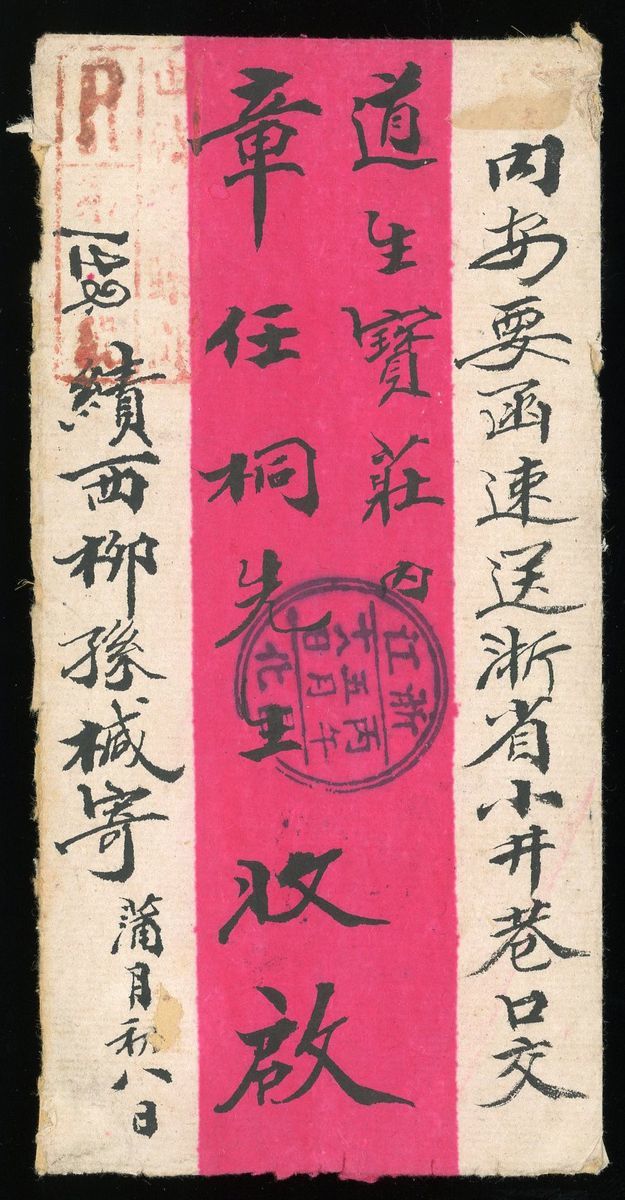 內安要函速送浙省小井巷口交
道生寶莊內
章任桐先生收啟
績西柳孫椷寄 蒲月初八日
浙江
丙午
五月
十六日
化
P